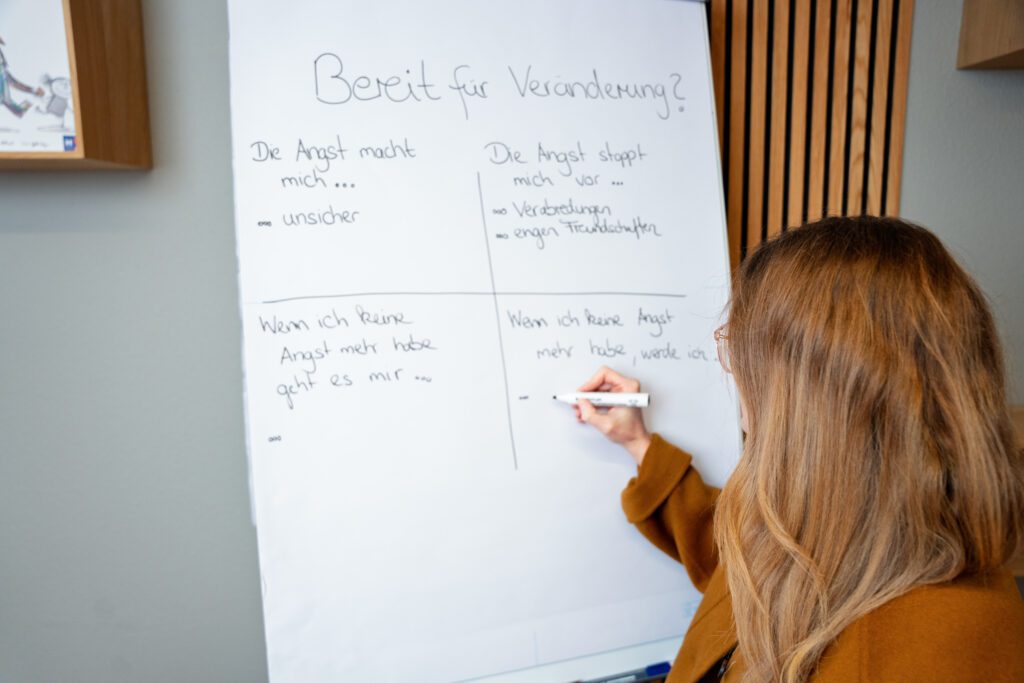 Bereit für Veränderung?
Die Angst macht
mich ...
... unsicher
Die Angst stoppt
mich vor ...
... Verabredungen
... engen Freundschaften
Wenn ich keine
Angst mehr habe
geht es mir ...
...
Wenn ich keine Angst
mehr habe, werde ich ..